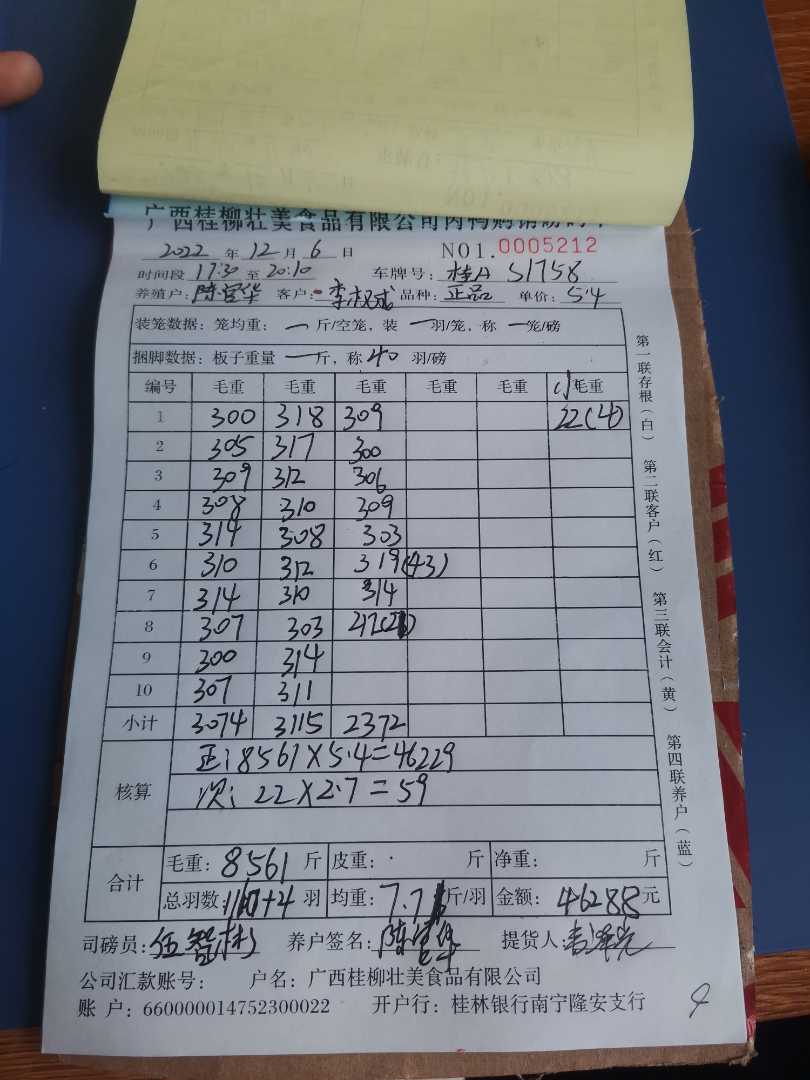 广西桂柳壮美食品有限公司肉鸭购销
2022 年 12 月 6 日 NO1. 0005212
时间段 17:30 至 20:10 车牌号: 桂A S1758
养殖户: 陈宝华 客户: 李权成 品种: 正品 单价: 5.4
装笼数据: 笼均重: 一 斤/空笼, 装 一 羽/笼, 称 一 笼/磅
捆脚数据: 板子重量 一 斤, 称 40 羽/磅
编号 毛重 毛重 毛重 毛重 毛重 小毛重
1 300 318 309 22(4)
2 305 317 300
3 309 312 306
4 308 310 309
5 314 308 303
6 310 312 319(43)
7 314 310 314
8 307 303 212
9 300 314
10 307 311
小计 3074 3115 2372
核算 正: 8561×5.4=46229
次: 22×2.7=59
合计 毛重: 8561 斤 皮重: 斤 净重: 斤
总羽数: +4 羽 均重: 7.7 斤/羽 金额: 46288 元
司磅员: 伍智彬 养户签名: 提货人:
公司汇款账号: 户名: 广西桂柳壮美食品有限公司
账 户: 660000014752300022 开户行: 桂林银行南宁隆安支行
第一联存根(白) 第二联客户(红) 第三联会计(黄) 第四联养户(蓝)